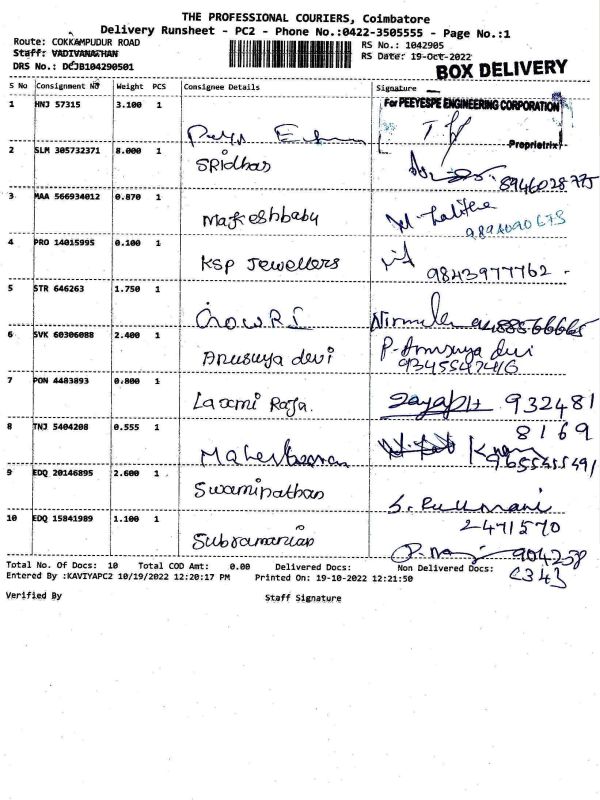 THE PROFESSIONAL COURIERS, Coimbatore
Delivery Runsheet - PC2 - Phone No.:0422-3505555 - Page No.:1
Route: COKKAMPUDUR ROAD
RS No.: 1042905
Staff: VADIVANATHAN
RS Date: 19-Oct-2022
DRS No.: DCJB104290501
BOX DELIVERY
S No Consignment NO Weight PCS Consignee Details Signature
1 HNJ 57315 3.100 1
For PEEYESPE ENGINEERING CORPORATION
Proprietrix
2 SLM 305732371 8.000 1 SRidhar
8946028775
3 MAA 566934012 0.870 1 Makeshbabu M. Lalitha
9894090675
4 PRO 14015995 0.100 1 KSP Jewellers
9843977762 -
5 STR 646263 1.750 1 GowRI Nirmala
6 SVK 60306088 2.400 1 Anusuya devi P. Anusuya devi
9345547416
7 PON 4483893 0.800 1 Laxmi Raja. 932481
8169
8 TNJ 5404208 0.555 1
9655455491
9 EDQ 20146895 2.600 1 Swaminathan S. Rukmani
2471570
10 EDQ 15841989 1.100 1 Subramanian 904258
Total No. Of Docs: 10 Total COD Amt: 0.00 Delivered Docs: Non Delivered Docs:
Entered By :KAVIYAPC2 10/19/2022 12:20:17 PM Printed On: 19-10-2022 12:21:50
Verified By Staff Signature